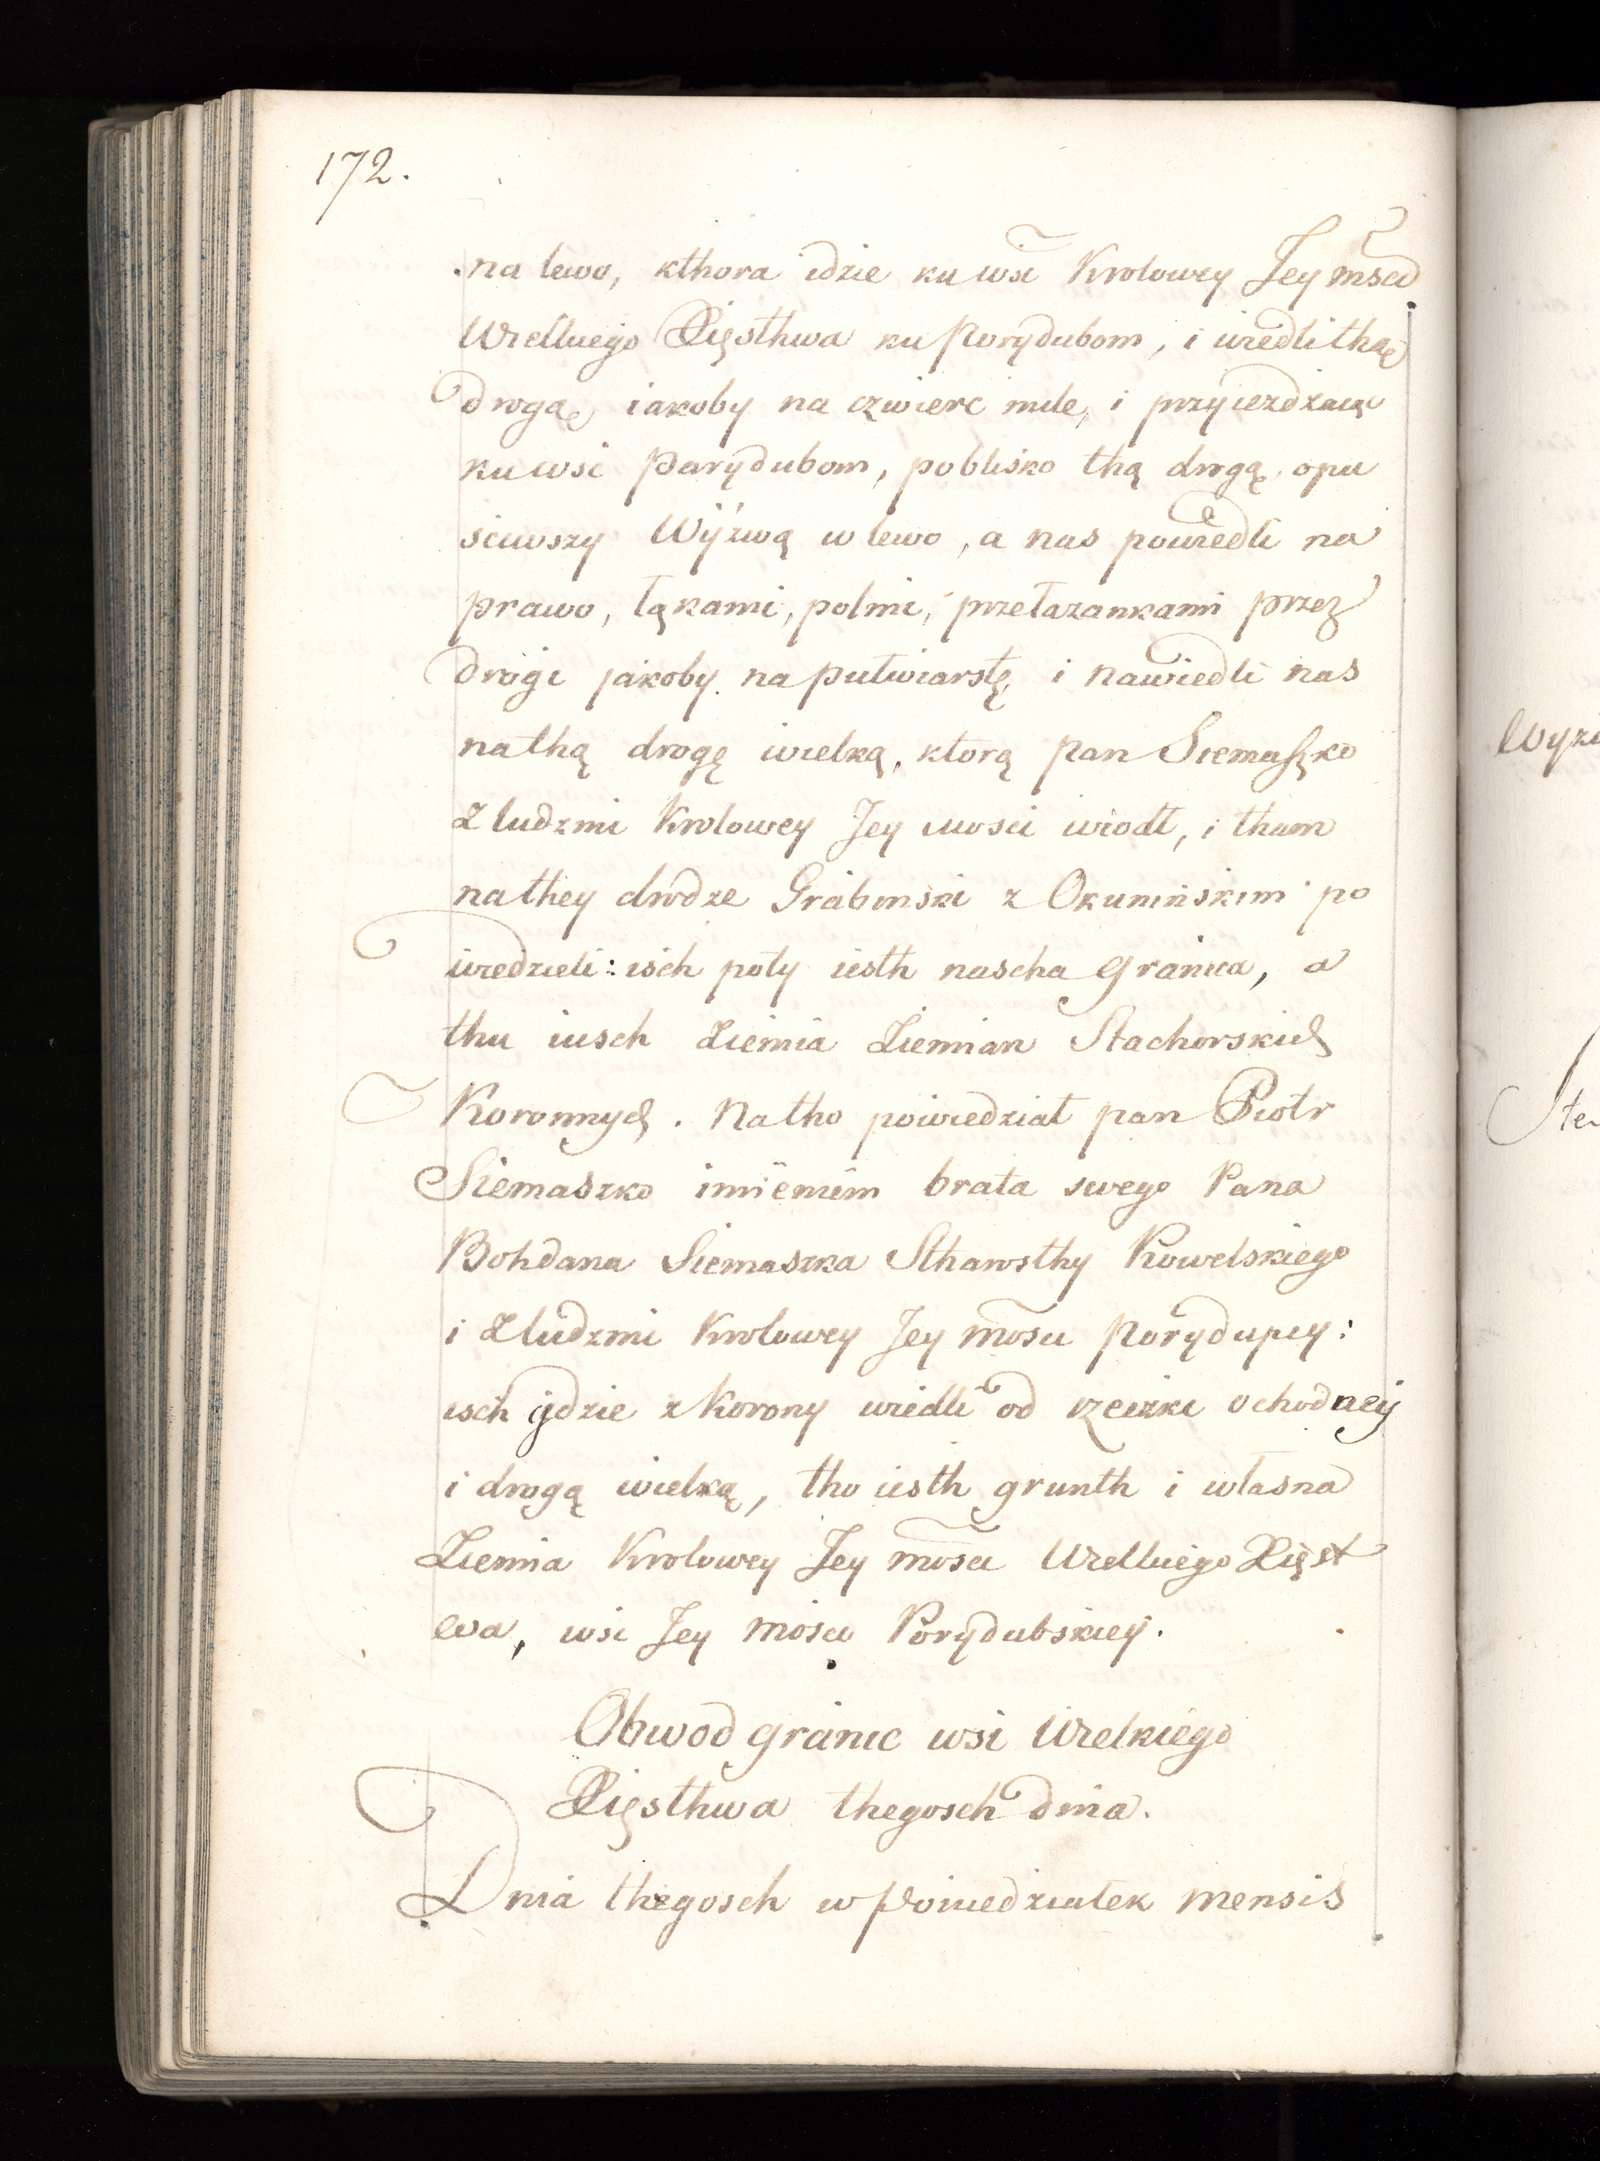 172.
na lewo, kthora idzie ku wsi Krolowey Jey msci
Wielkiego Xięsthwa ku Porydubom, i wiedli thą
drogą, iakoby na czwierc mile, i przyiezdżaiąc
ku wsi Parydubom, poblisko thą drogą opu
sciwszy Wyżwą w lewo, a nas powiedli na
prawo, łąkami, polmi, przełazankami przez
drogi jakoby na pułwiarstę, i nawiedli nas
na thą drogę wielką, ktorą pan Siemaszko
z ludzmi Krolowey Jey mosci wiodł, i tham
na they drodze Grabonski z Okuninskim po
wiedzieli: isch poty iesth nascha Granica, a
thu iusch Ziemia Ziemian Stachorskich
Koronnych. Na tho powiedział pan Piotr
Siemaszko imieniem brata swego Pana
Bohdana Siemaszka Stharosthy Kowelskiego
i z ludzmi Krolowey Jey mosci Porydupcy:
isch gdzie z Korony wiedli od rzeczki ochodney
i drogą wielką, tho iesth grunth i własna
Ziemia Krolowey Jey mosci Wielkiego Xięst
wa, wsi Jey mosci Porydubskiey.
Obwod granic wsi Wielkiego
Xięsthwa thegosch dnia.
Dnia thegosch w Poniedziałek mensis
Wyzi
Ste